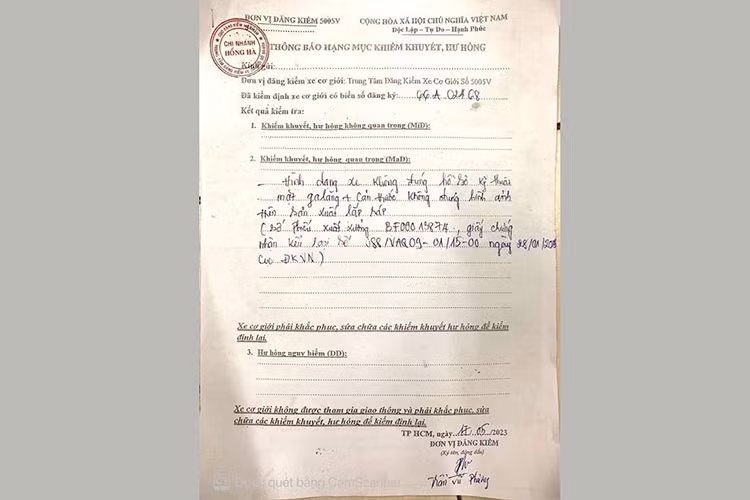 ĐƠN VỊ ĐĂNG KIỂM 5005V
CỘNG HÒA XÃ HỘI CHỦ NGHĨA VIỆT NAM
Độc Lập – Tự Do – Hạnh Phúc
CHI NHÁNH
HỒNG HÀ
THÔNG BÁO HẠNG MỤC KHIẾM KHUYẾT, HƯ HỎNG
Kính gửi:
Đơn vị đăng kiểm xe cơ giới: Trung Tâm Đăng Kiểm Xe Cơ Giới Số 5005V
Đã kiểm định xe cơ giới có biển số đăng ký:
Kết quả kiểm tra:
1. Khiếm khuyết, hư hỏng không quan trọng (MiD):
2. Khiếm khuyết, hư hỏng quan trọng (MaD):
Hình dạng xe không đúng hồ sơ kỹ thuật
mặt galăng + cản trước không đúng hình ảnh
sản xuất lắp ráp
(số phiếu xuất xưởng, giấy chứng
nhận kiểu loại số /VAQ09-01/15-00 ngày 28/01/
Cục ĐKVN)
Xe cơ giới phải khắc phục, sửa chữa các khiếm khuyết hư hỏng để kiểm
định lại.
3. Hư hỏng nguy hiểm (DD):
Xe cơ giới không được tham gia giao thông và phải khắc phục, sửa
chữa các khiếm khuyết, hư hỏng để kiểm định lại.
TP HCM, ngày 05/2023
ĐƠN VỊ ĐĂNG KIỂM
(Ký tên, đóng dấu)
Trần Vũ Phùng
Được quét bằng CamScanner